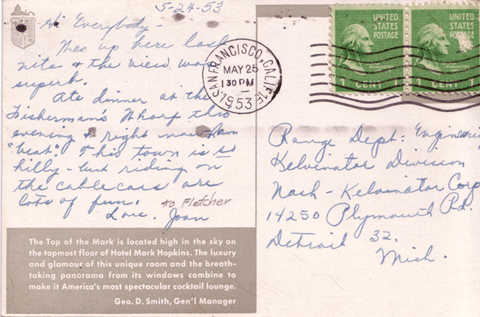 5-24-53
Hi Everybody-
Was up here last
nite & the view was
superb.
Ate dinner at the
Fisherman's Wharf this
evening & right now I am
"beat". This town is so
hilly - but riding on
the cable cars are
lots of fun.
to Fletcher
Love, Joan
The Top of the Mark is located high in the sky on
the topmost floor of Hotel Mark Hopkins. The luxury
and glamour of this unique room and the breath-
taking panorama from its windows combine to
make it America's most spectacular cocktail lounge.
Geo. D. Smith, Gen'l Manager
SAN FRANCISCO, CALIF.
MAY 25
1 30 PM
1953
UNITED STATES
POSTAGE
1 CENT 1
UNITED STATES
POSTAGE
1 CENT 1
Range Dept: Engineering
Kelvinator Division
Nash - Kelvinator Corp
14250 Plymouth Rd.
Detroit 32,
Mich.